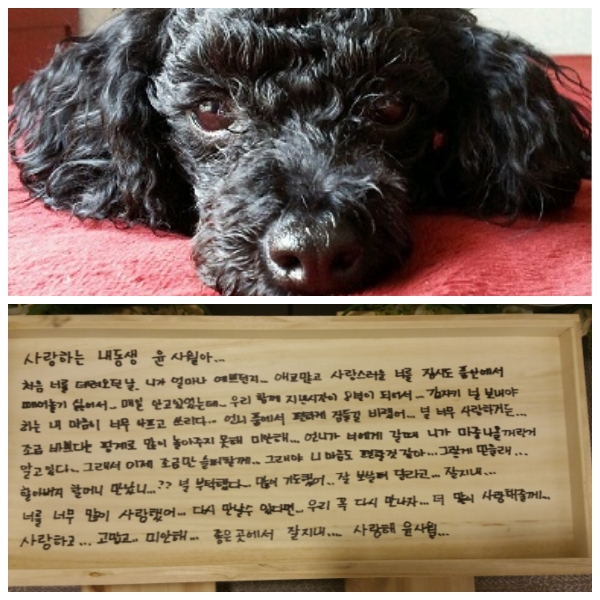 사랑하는 내동생 윤사월아...
처음 너를 데려오던날, 니가 얼마나 예쁘던지... 애교많고 사랑스러운 너를 잠시도 품안에서
떼어놓기 싫어서... 매일 안고있었는데... 우리 함께 지낸시간이 8년이 되어서... 갑자기 널 보내야
하는 내 마음이 너무 아프고 쓰리다... 언니 품에서 편하게 잠들길 바랬어... 널 너무 사랑하거든...
조금 바쁘다는 핑계로 많이 놀아주지 못해 미안해... 언니가 너에게 갈때 니가 마중나올꺼란거
알고있다... 그래서 이제 조금만 슬퍼할께... 그래야 니 마음도 편할것 같아... 그렇게 만들래...
할아버지 할머니 만났니...?? 널 부탁했다... 많이 기도했어... 잘 보살펴 달라고... 잘지내...
너를 너무 많이 사랑했어... 다시 만날수 있다면... 우리 꼭 다시 만나자... 더 많이 사랑해줄께...
사랑하고... 고맙고.. 미안해... 좋은곳에서 잘지내.... 사랑해 윤사월...